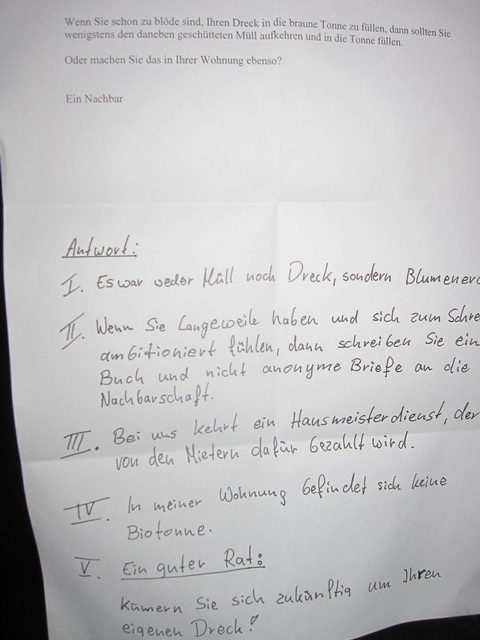 Wenn Sie schon zu blöde sind, Ihren Dreck in die braune Tonne zu füllen, dann sollten Sie
wenigstens den daneben geschütteten Müll aufkehren und in die Tonne füllen.
Oder machen Sie das in Ihrer Wohnung ebenso?
Ein Nachbar
Antwort:
I. Es war weder Müll noch Dreck, sondern Blumenerd
II. Wenn Sie Langeweile haben und sich zum Schre
ambitioniert fühlen, dann schreiben Sie ein
Buch und nicht anonyme Briefe an die
Nachbarschaft.
III. Bei uns kehrt ein Hausmeisterdienst, der
von den Mietern dafür bezahlt wird.
IV. In meiner Wohnung befindet sich keine
Biotonne.
V. Ein guter Rat:
Kümern Sie sich zukünftig um Ihren
eigenen Dreck!